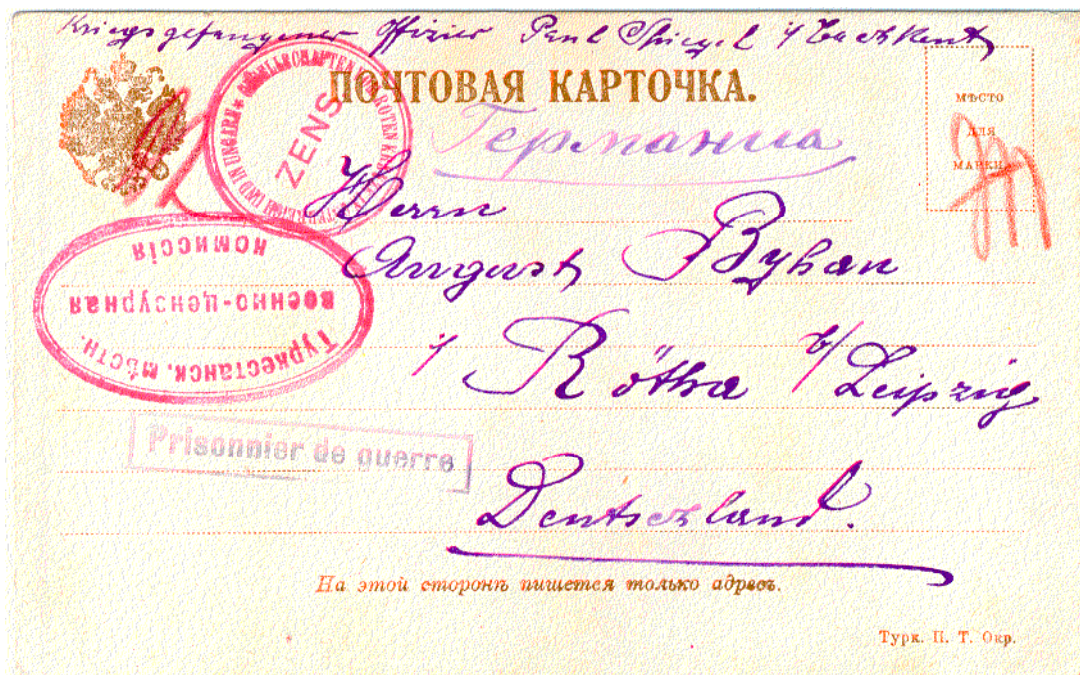 Kriegsgefangener Offizier Paul Spiegel i/ Taschkent
ПОЧТОВАЯ КАРТОЧКА.
МѢСТО
ДЛЯ
МАРКИ.
Германиа
ZENS
Herrn
August Byhan
i/ Rötha b/ Leipzig
Deutschland.
Туркестанск. мѣстн.
военно-цензурная
комиссія
Prisonnier de guerre
На этой сторонѣ пишется только адресъ.
Турк. П. Т. Окр.